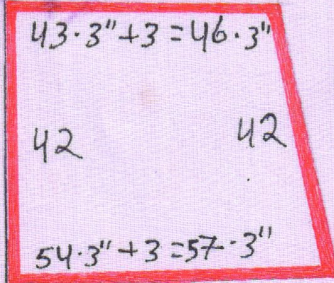 43·3"+3=46·3"
42 42
54·3"+3=57·3"